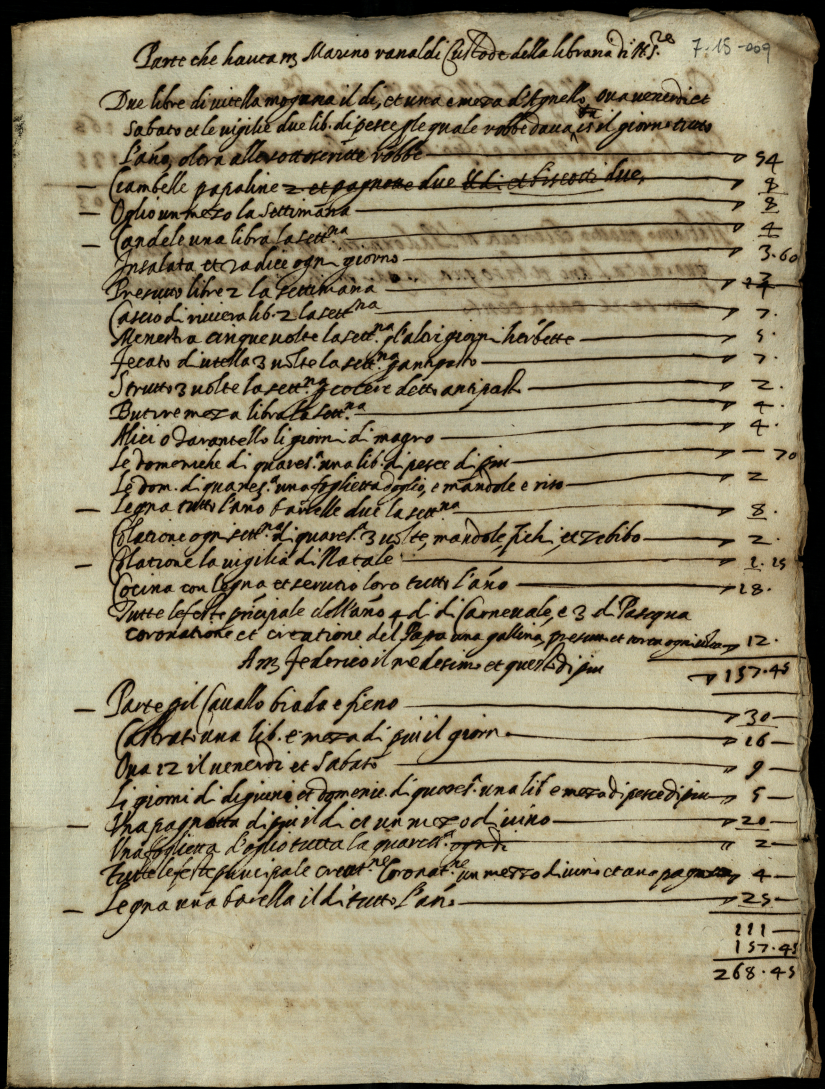 7-15-009
Parte che haveva m Marino ranaldi Custode della libraria di N. S.re
Due libre di vitella mogana il di, et una e meza d'Agnello, Ova venerdi et
Sabato et le vigilie due lib. di pesce p le quale robbe dava il giorno tutto
l'año, oltra alle sottoscritte robbe 54
— Ciambelle papaline 2 et pagnotte due il di et biscotti due, 8
— Oglio un mezo la settimana 8
— Candele una libra la sett.na 4
Insalata et radice ogni giorno 3.60
Presutto libre 2 la settimana
Cascio di riviera lib. 2 la sett.na 7.
Menestra cinque volte la sett.na gl'altri giorni herbette 5.
Fecato di vitella 3 volte la sett.na p antipasto 7.
Strutto 3 volte la sett.na p cocere detto antipasto 2.
Butire meza libra la sett.na 4.
Alici o tarantello li giorni di magro 4.
Le domeniche di quares.a una lib. di pesce di piu — 70
Le dom. di quares.a una foglietta d'oglio, e mandole e riso 2
— Legna tutto l'año barelle due la sett.na 8.
Colatione ogni sett.na di quares.a 3 volte, mandole, fichi, et zebibo 2.
— Colatione la vigilia di Natale 1.15
Cocina con legna et servitio loro tutto l'año 18.
Tutte le feste principale dell'año 4 di di Carnevale, e 3 di Pasqua
coronatione et creatione del Papa una gallina, presutto et torta ogni volta 12.
A m Federico il medesimo et questo di piu 157.45
— Parte p il Cavallo biada e fieno 30 —
Castrato una lib. e meza di piu il giorno 16 —
Ova 12 il venerdi et Sabato 9 —
Li giorni di digiuno et domenie. di quares.a una lib e meza di pesce di piu 5 —
— Una pagnotta di piu il di et un mezo di vino 20 —
Una foglietta d'oglio tutta la quares.a ogni di 2 —
Tutte le feste principale creat.ne Coronat.ne un mezzo di vino et una pagnotta 4 —
— Legna una barella il di tutto l'año 25 —
111 —
157.45
268.45